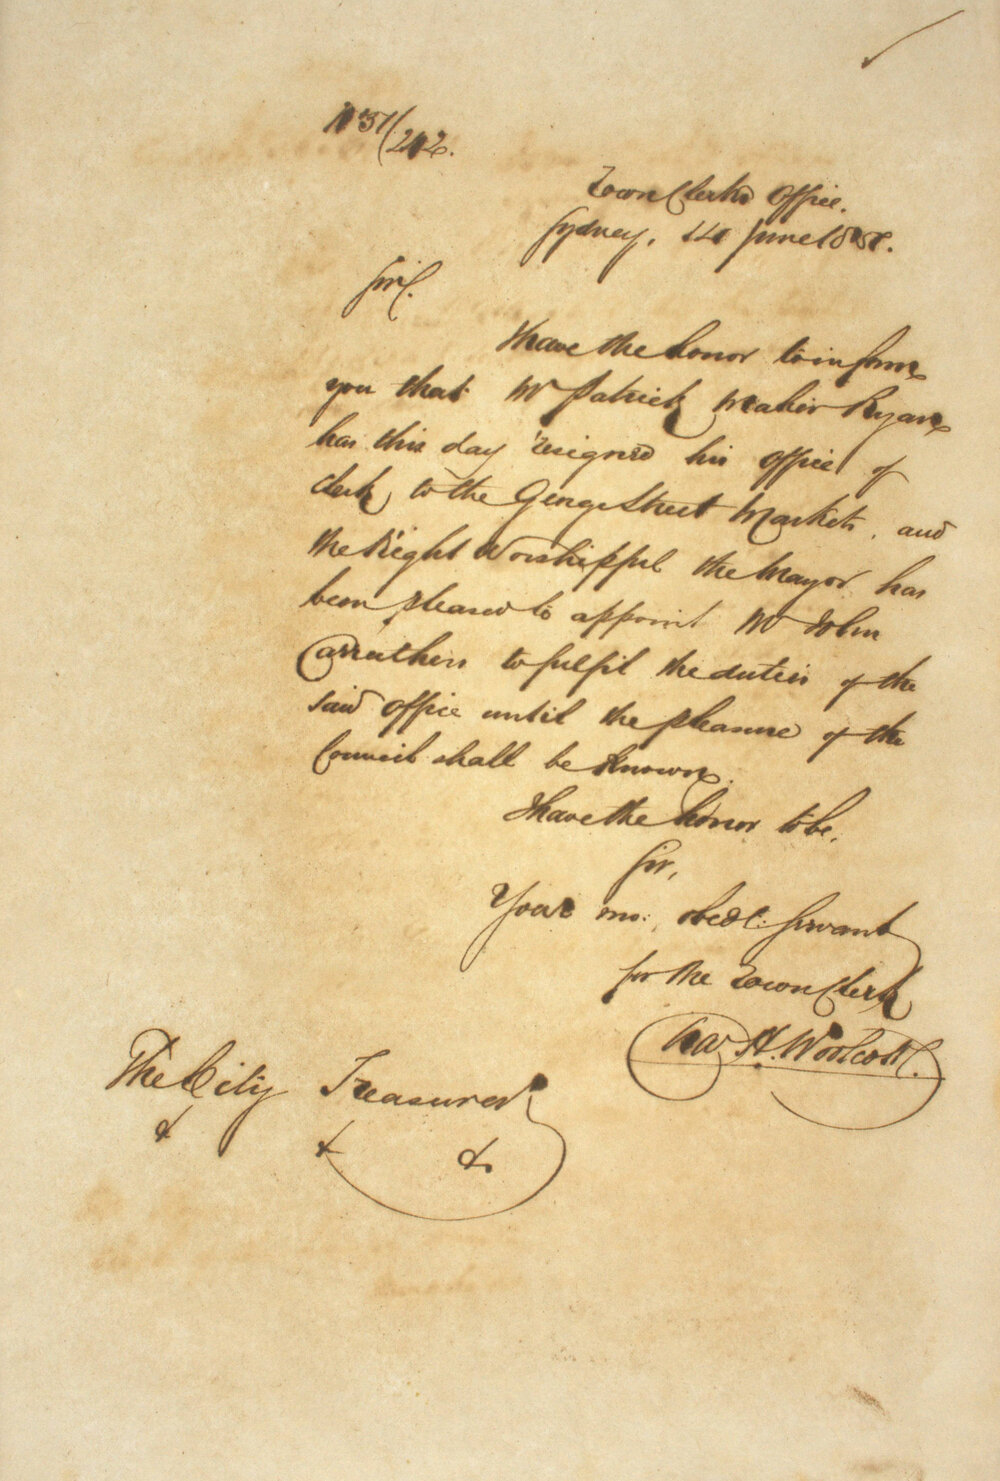 Town Clerks Office.
Sydney, 14 June 1858.
Sir.
I have the honor to inform
you that Mr Patrick Maher Ryan
has this day resigned his office of
Clerk to the George Street Markets, and
the Right Worshipful the Mayor has
been pleased to appoint Mr John
Carruthers to fulfil the duties of the
said office until the pleasure of the
Council shall be known.
I have the honor to be,
Sir,
Your mo: obedt: Servant
for the Town Clerk
Chas H. Woolcott.
The City Treasurer
& & &.